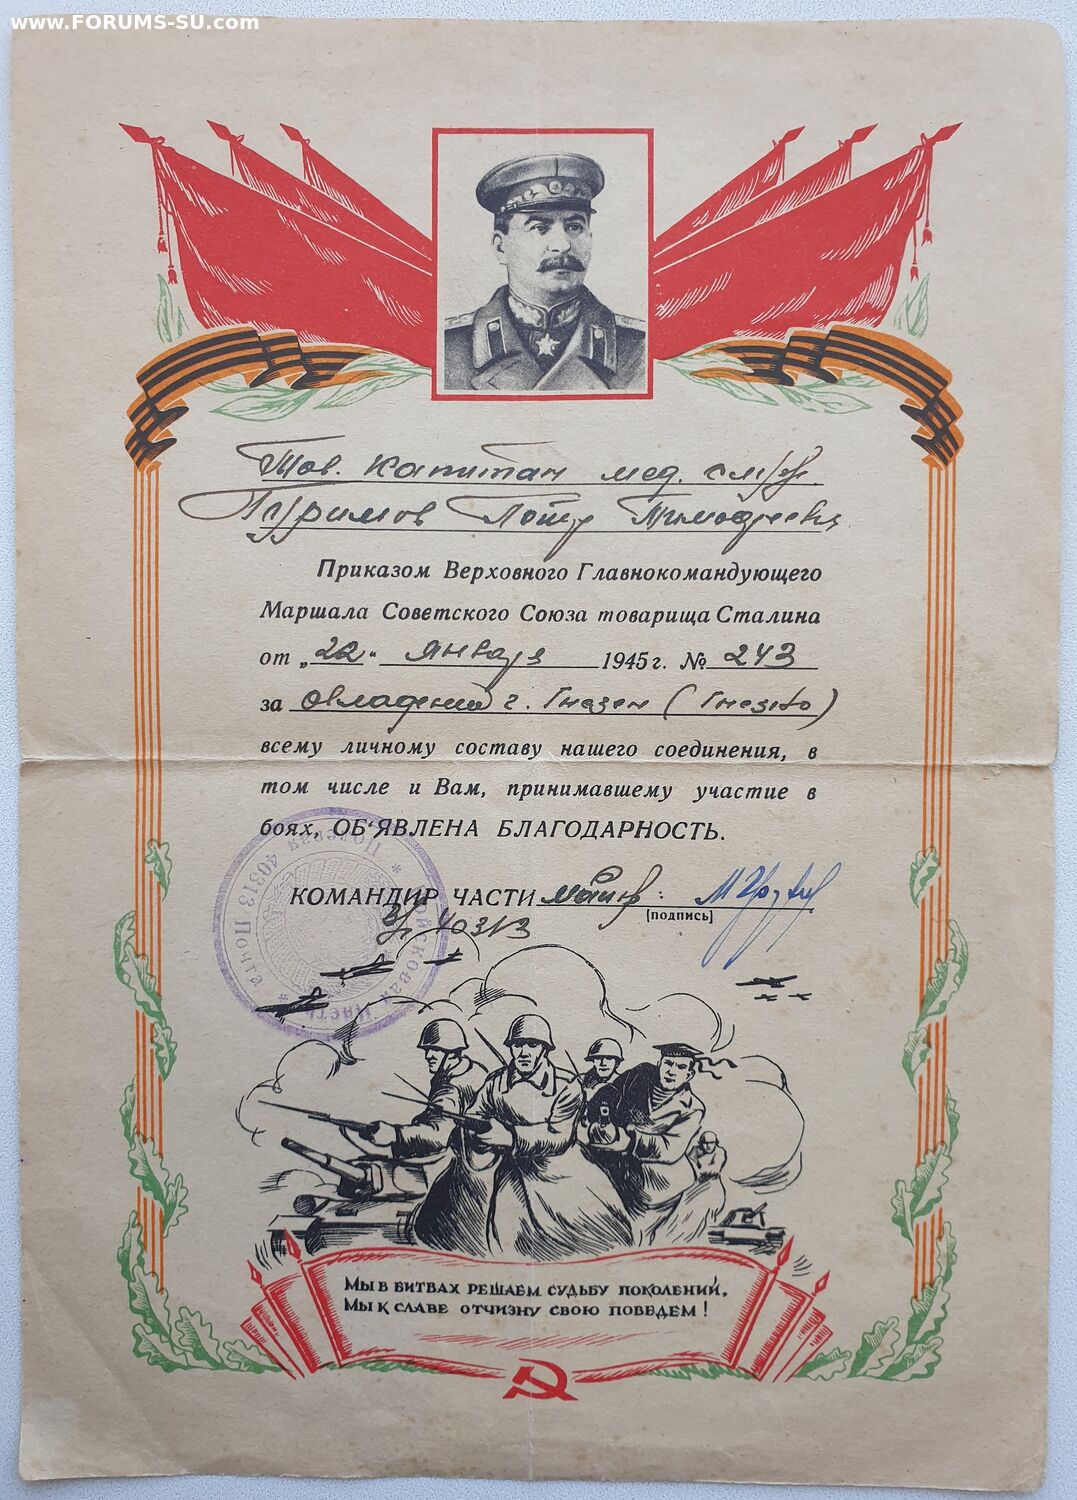 www.FORUMS-SU.com
Тов. капитан мед. служ.
Петр
Приказом Верховного Главнокомандующего
Маршала Советского Союза товарища Сталина
от „22" января 1945 г. № 243
за овладение г. Гнезен (Гнезно)
всему личному составу нашего соединения, в
том числе и Вам, принимавшему участие в
боях, ОБ'ЯВЛЕНА БЛАГОДАРНОСТЬ.
КОМАНДИР ЧАСТИ майор:
[подпись]
40313
Войсковая часть * Полевая Почта 40313 *
Мы в битвах решаем судьбу поколений,
Мы к славе отчизну свою поведем!